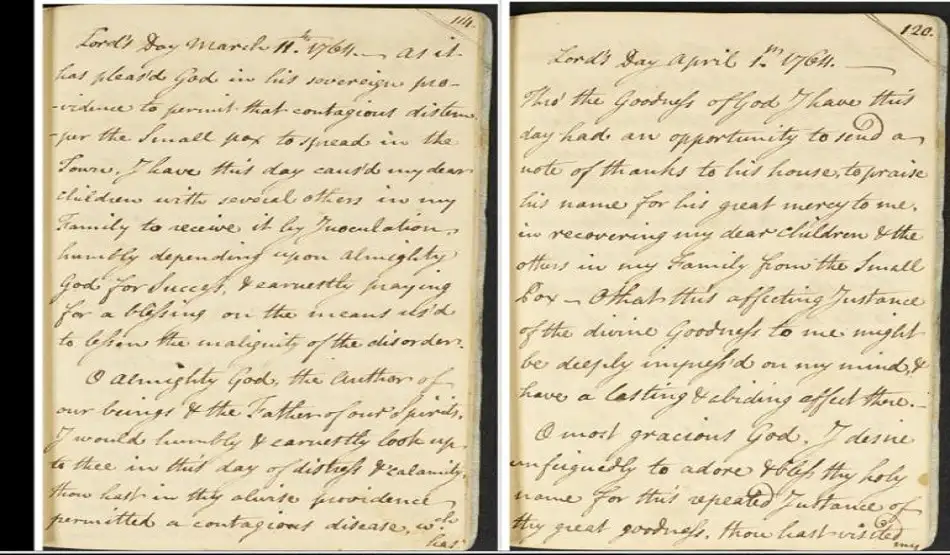 114.
Lord's Day March 11th. 1764. — As it
has pleas'd God in his sovereign pro-
-vidence to permit that contagious distem-
-per the Small pox to spread in the
Town, I have this day caus'd my dear
Children with several others in my
Family to receive it by Inoculation,
humbly depending upon almighty
God for Success, & earnestly praying
for a blessing on the means us'd
to lessen the malignity of the disorder.
O Almighty God, the Author of
our beings & the Father of our Spirits,
I would humbly & earnestly look up
to thee in this day of distress & calamity,
thou hast in thy alwise providence
permitted a contagious disease, wch
has
120.
Lord's Day April 1.st 1764. —
Thro' the Goodness of God I have this
day had an opportunity to send a
note of thanks to his house, to praise
his name for his great mercy to me,
in recovering my dear Children & the
others in my Family from the Small
Pox — O that this affecting Instance
of the divine Goodness to me might
be deeply impress'd on my mind, &
have a lasting & abiding affect there. —
O most gracious God, I desire
unfeignedly to adore & bless thy holy
name for this repeated Instance of
thy great goodness, thou hast visited
my